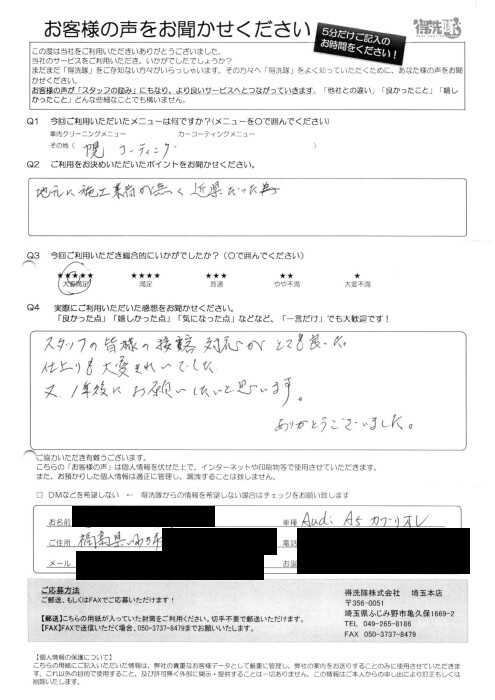 お客様の声をお聞かせください
5分だけご記入の
お時間をください！
得洗隊
この度は当社をご利用いただきありがとうございました。
当社のサービスをご利用いただき、いかがでしたでしょうか？
まだまだ「得洗隊」をご存知ない方々がいらっしゃいます。その方々へ「得洗隊」をよく知っていただくために、あなた様の声をお聞
かせください。
お客様の声が「スタッフの励み」にもなり、より良いサービスへとつながっていきます。「他社との違い」「良かったこと」「嬉し
かったこと」どんな些細なことでも構いません。
Q1 今回ご利用いただいたメニューは何ですか？(メニューを〇で囲んでください)
車内クリーニングメニュー カーコーティングメニュー
その他（ 幌 コーティング ）
Q2 ご利用をお決めいただいたポイントをお聞かせください。
地元に施工業者が無く 近県だった事
Q3 今回ご利用いただき総合的にいかがでしたか？（〇で囲んでください）
★★★★★ ★★★★ ★★★ ★★ ★
大変満足 満足 普通 やや不満 大変不満
Q4 実際にご利用いただいた感想をお聞かせください。
「良かった点」「嬉しかった点」「気になった点」などなど、「一言だけ」でも大歓迎です！
スタッフの皆様の接客 対応がとても良かった。
仕上りも大変きれいでした
又、1年後にお願いしたいと思います。
ありがとうございました。
ご協力いただき有難うございます。
こちらの「お客様の声」は個人情報を伏せた上で、インターネットや印刷物等で使用させていただきます。
また、お預かりした個人情報は適正に管理し、漏洩することは致しません。
□ DMなどを希望しない ← 得洗隊からの情報を希望しない場合はチェックをお願い致します
お名前 車種 Audi A5 カブリオレ
ご住所 福島県いわき市 電話
メール お誕
ご応募方法
ご郵送、もしくはFAXでご応募いただけます！
【郵送】こちらの用紙が入っていた封筒をご利用ください。切手不要で郵送いただけます。
【FAX】FAXで送信いただく場合、050-3737-8479までお願いいたします。
得洗隊株式会社 埼玉本店
〒356-0051
埼玉県ふじみ野市亀久保1669-2
TEL 049-265-8186
FAX 050-3737-8479
【個人情報の保護について】
こちらの用紙にご記入いただいた情報は、弊社の貴重なお客様データとして厳重に管理し、弊社の案内をお送りすることのみに使用させていただきま
す。これ以外の目的で使用すること、及び許可無く外部に開示・提供することは一切ありません。この情報はご本人からの申し出により訂正もしくは
削除いたします。